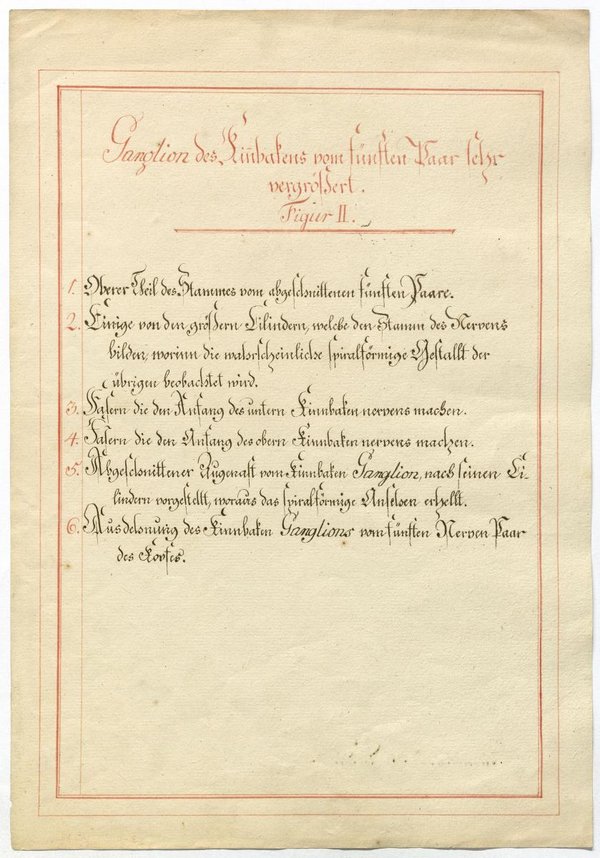 Ganglion des Kin̄bakens vom fünften Paar sehr
vergrößert.
Figur II.
1. Oberer Theil des Stammes vom abgeschnittenen fünften Paare.
2. Einige von den größern Cilindern, welche den Stamm des Nervens
bilden, worinn die wahrscheinliche spiralförmige Gestallt der
übrigen beobachtet wird.
3. Fasern die den Anfang des untern Kinnbaken nervens machen.
4. Fasern die den Anfang des obern Kinnbaken nervens machen.
5. Abgeschnittener Augenast vom Kinnbaken Ganglion, nach seinen Ci-
lindern vorgestellt, woraus das spiralförmige Ansehen erhellt.
6. Ausdehnung des Kinnbaken Ganglions vom fünften Nerven Paar
des Kopfes.